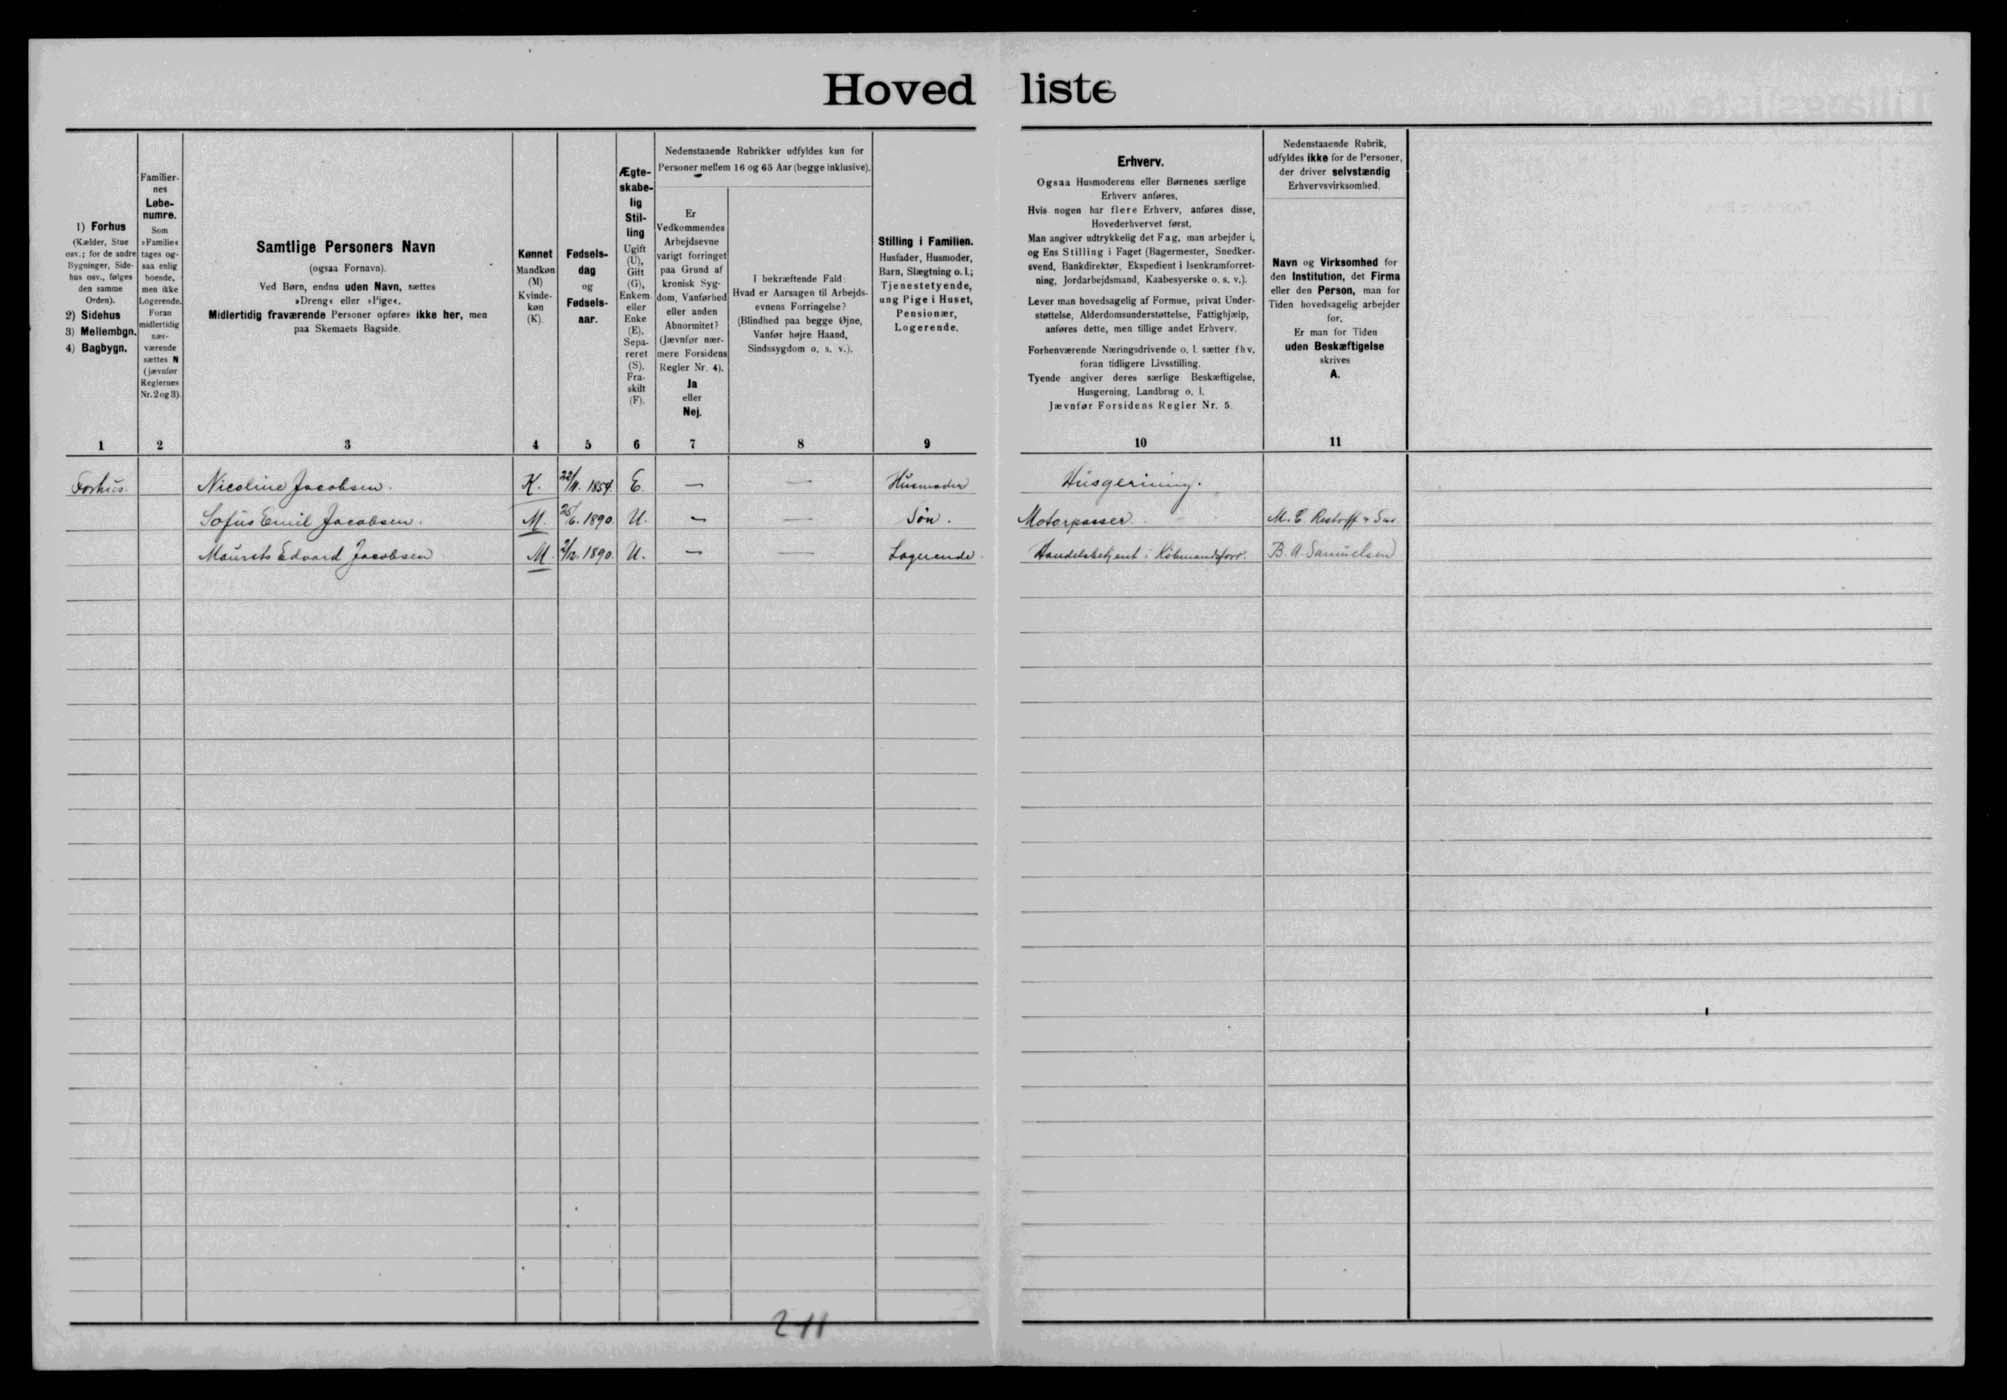 Hovedliste
1) Forhus
(Kælder, Stue
osv.; for de andre
Bygninger, Side-
hus osv., følges
den samme
Orden).
2) Sidehus
3) Mellembgn.
4) Bagbygn.
1
Familier-
nes
Løbe-
numre.
Som
»Familie«
tages og-
saa enlig
boende,
men ikke
Logerende.
Foran
midlertidig
nær-
værende
sættes N
(jævnfør
Reglernes
Nr. 2 og 3).
2
Samtlige Personers Navn
(ogsaa Fornavn).
Ved Børn, endnu uden Navn, sættes
»Dreng« eller »Pige«.
Midlertidig fraværende Personer opføres ikke her, men
paa Skemaets Bagside.
3
Kønnet
Mandkøn
(M)
Kvinde-
køn
(K).
4
Fødsels-
dag
og
Fødsels-
aar.
5
Ægte-
skabe-
lig
Stil-
ling
Ugift
(U),
Gift
(G),
Enkem.
eller
Enke
(E),
Sepa-
reret
(S),
Fra-
skilt
(F).
6
Nedenstaaende Rubrikker udfyldes kun for
Personer mellem 16 og 65 Aar (begge inklusive).
Er
Vedkommendes
Arbejdsevne
varigt forringet
paa Grund af
kronisk Syg-
dom, Vanførhed
eller anden
Abnormitet?
(Jævnfør nær-
mere Forsidens
Regler Nr. 4).
Ja
eller
Nej.
7
I bekræftende Fald:
Hvad er Aarsagen til Arbejds-
evnens Forringelse?
(Blindhed paa begge Øjne,
Vanfør højre Haand,
Sindssygdom o. s. v.).
8
Stilling i Familien.
Husfader, Husmoder,
Barn, Slægtning o. l.;
Tjenestetyende,
ung Pige i Huset,
Pensionær,
Logerende.
9
Erhverv.
Ogsaa Husmoderens eller Børnenes særlige
Erhverv anføres.
Hvis nogen har flere Erhverv, anføres disse,
Hovederhvervet først.
Man angiver udtrykkelig det Fag, man arbejder i,
og Ens Stilling i Faget (Bagermester, Snedker-
svend, Bankdirektør, Ekspedient i Isenkramforret-
ning, Jordarbejdsmand, Kaabesyerske o. s. v.).
Lever man hovedsagelig af Formue, privat Under-
støttelse, Alderdomsunderstøttelse, Fattighjælp,
anføres dette, men tillige andet Erhverv.
Forhenværende Næringsdrivende o. l. sætter fhv.
foran tidligere Livsstilling.
Tyende angiver deres særlige Beskæftigelse,
Husgerning, Landbrug o. l.
Jævnfør Forsidens Regler Nr. 5.
10
Nedenstaaende Rubrik,
udfyldes ikke for de Personer,
der driver selvstændig
Erhvervsvirksomhed.
Navn og Virksomhed for
den Institution, det Firma
eller den Person, man for
Tiden hovedsagelig arbejder
for.
Er man for Tiden
uden Beskæftigelse
skrives
A.
11
Forhus. Nicoline Jacobsen. K. 22/11. 1854. E. — — Husmoder Husgerning.
Sofus Emil Jacobsen. M. 25/6. 1890. U. — — Søn. Motorpasser. M. C. Restorff & Søn
Maurits Edvard Jacobsen M. 2/12. 1890. U. — — Logerende. Handelsbetjent i Købmandsforr. B. A. Samuelsen
211